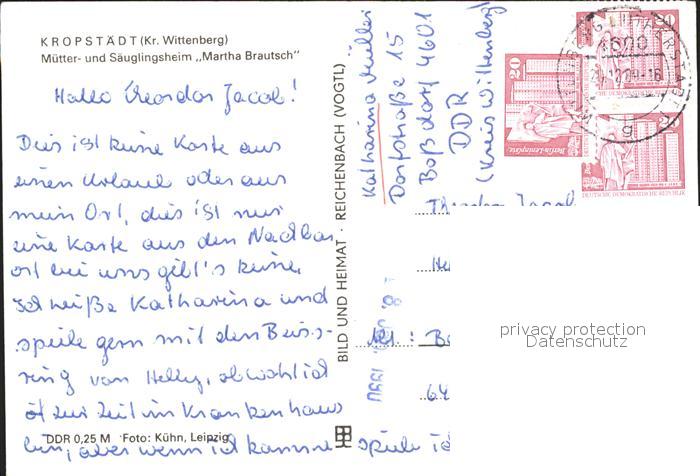 KROPSTÄDT (Kr. Wittenberg)
Mütter- und Säuglingsheim „Martha Brautsch"
Hallo Theodor Jacob!
Dies ist keine Karte aus
einen Urlaub oder aus
mein Ort, dies ist nur
eine Karte aus den Nachbar
ort bei uns gibt's keine.
Ich heiße Katharina und
spiele gern mit den Beiss-
ring von Helly, obwohl ich
zur Zeit in Krankenhaus
bin, aber wenn ich komme spiele ic
DDR 0,25 M Foto: Kühn, Leipzig
BILD UND HEIMAT · REICHENBACH (VOGTL)
Katharina Müller
Dorfstraße 15
Boßdorf 4601
DDR
(Kreis Wittenberg)
20
Berlin-Leninplatz
DEUTSCHE DEMOKRATISCHE REPUBLIK
4600
Theodor Jacob
He
64
privacy protection
Datenschutz